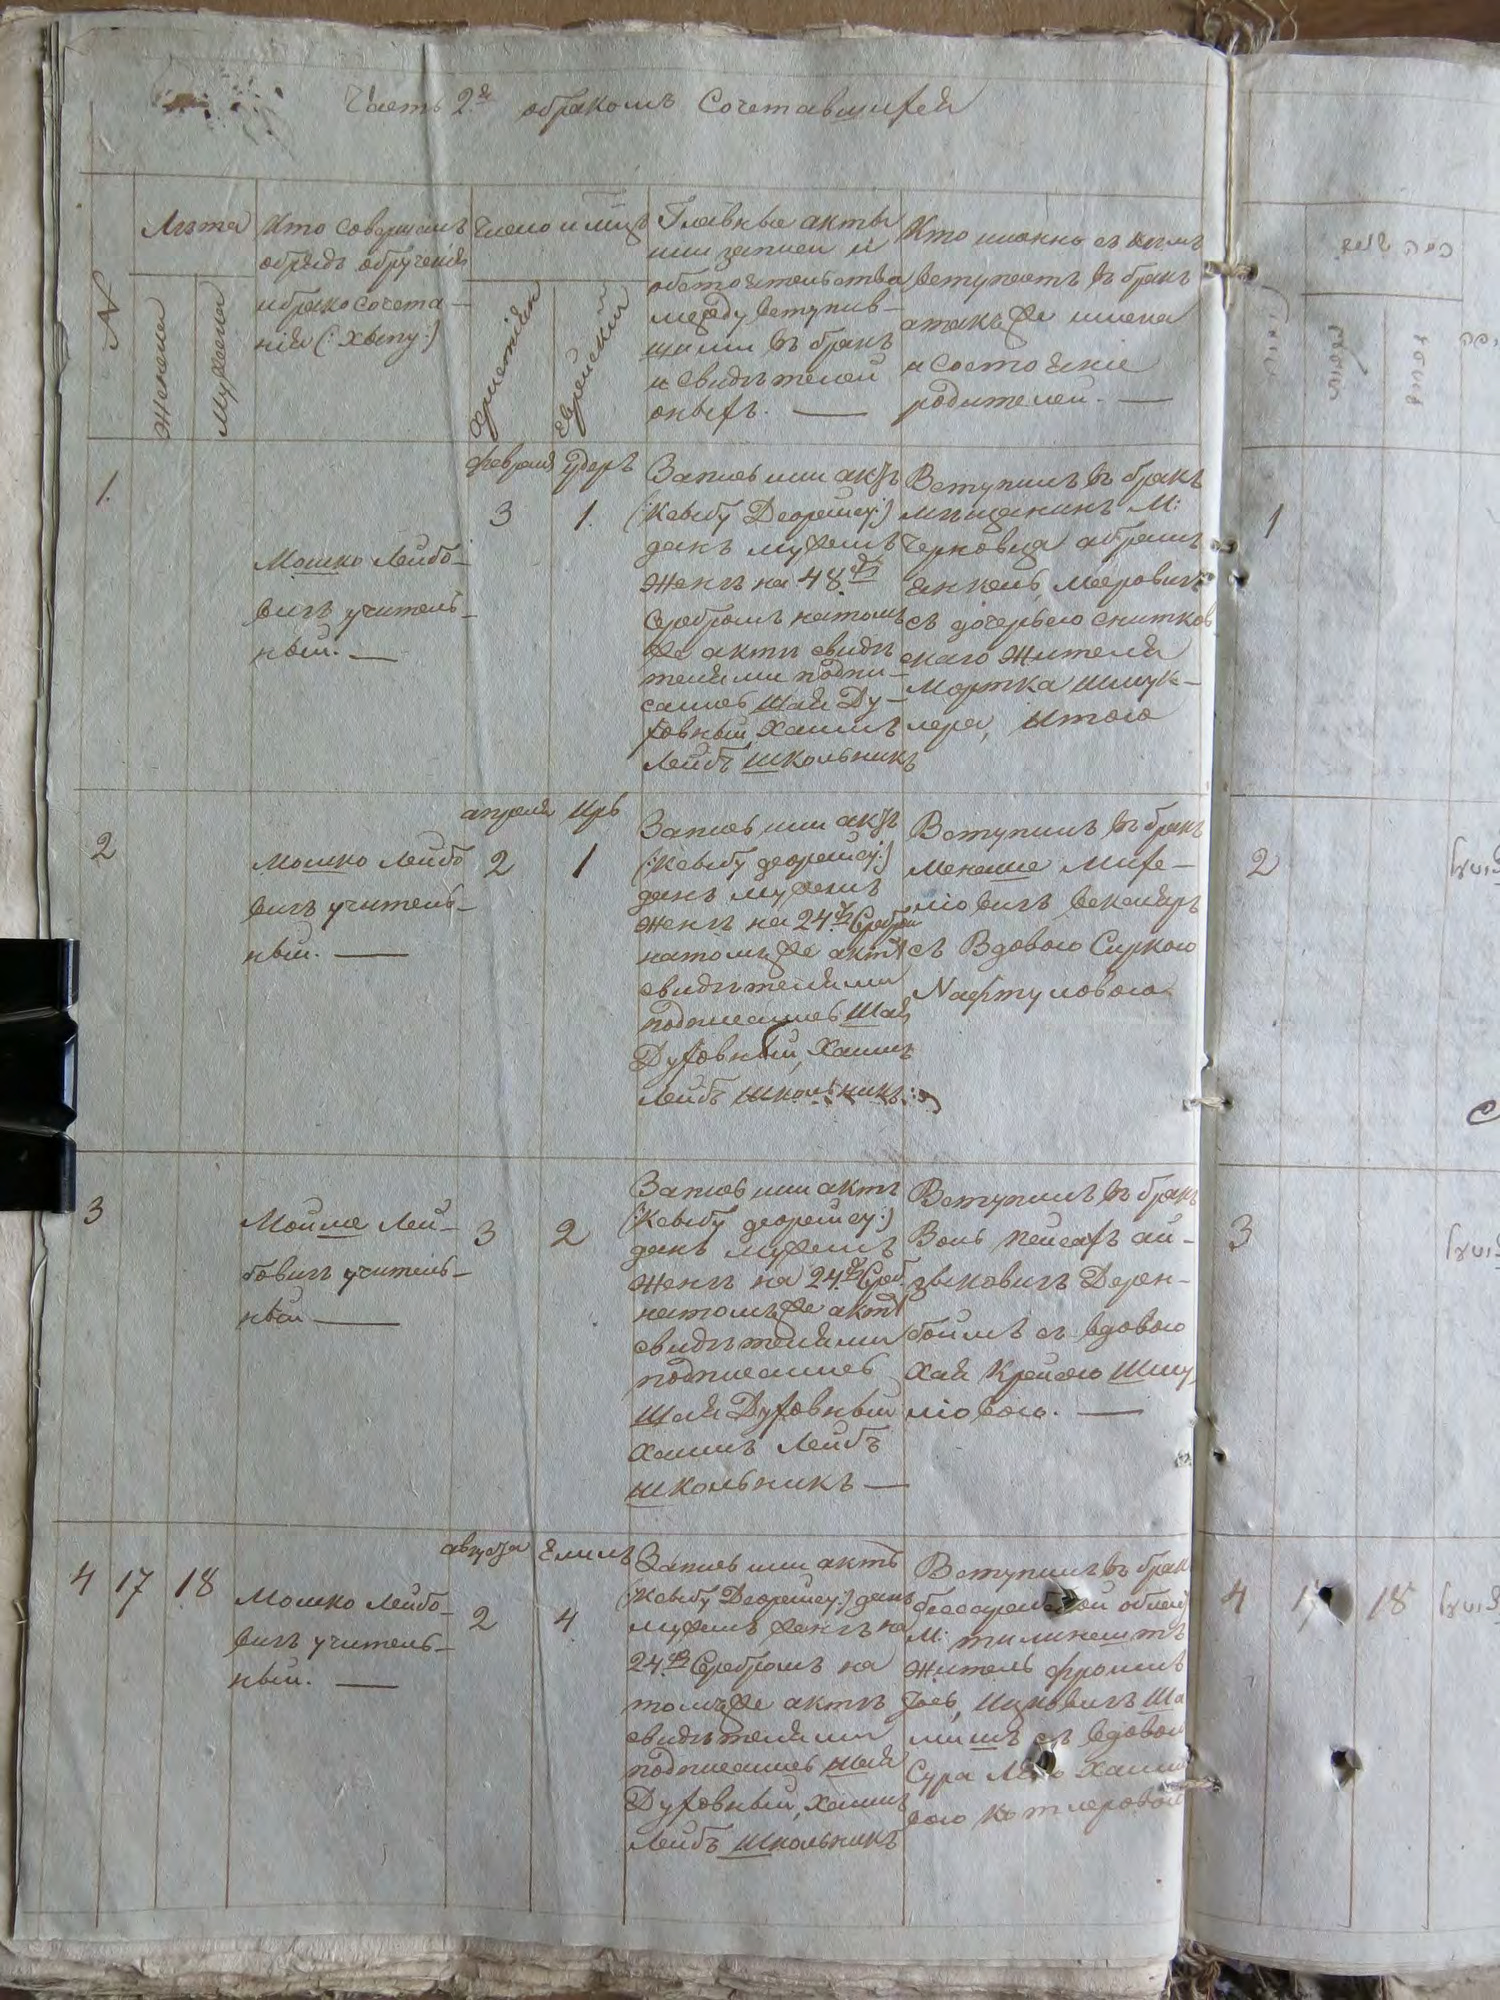 Часть 2я о бракомъ Сочетавшихся
№
Лѣта
Женска
Мужеска
Кто Совершалъ
обрядъ обрученія
и бракосочета-
нія (: Хыпу:)
Число и мць
Христіянск
Еврейский
Главные акты
или записи и
обстоятельства
между вступив-
шими въ бракъ
и свидѣтелей
оныхъ. —
Кто именно съ кемъ
вступаетъ въ бракъ
а такъ же имена
и состояніе
родителей. —
1.
февраля
3
Удеръ
1.
Мошко Лейбо-
вичъ учитель-
ный. —
Запись или актъ
(: Ксыбу Деорейсу:)
данъ мужемъ
Женѣ на 48 чр
Серебромъ на томъ
же актѣ свидѣ
телями подпи-
сались Шая Ду-
ховный, Хаимъ
Лейбъ Школьникъ
Вступилъ въ бракъ
мѣщанинъ М:
Черновца абрамъ
Янкель, Мееровичъ
съ дочерью снитков
скаго Жителя
Мортка Шмук-
лера, Итою
2
апреля
2
Иръ
1
Мошко Лейбо
вичъ учитель-
ный. —
Запись или актъ
(: Ксыбу деорейсу:)
данъ мужемъ
Женѣ на 24 чр Серебр
на томъ же актѣ
свидѣтелями
подписались Шая
Духовный, Хаимъ
Лейбъ Школьникъ:
Вступилъ въ бракъ
Менаше Михе-
ліовичъ
съ Вдовою Суркою
Nафтуловою
3
3
2
Мойше Лей-
бовичъ учитель-
ный —
Запись или актъ
(: Ксыбу деорейсу:)
данъ мужемъ
Женѣ на 24 чр Сереб.
на томъ же актѣ
свидѣтелями
подписались
Шая Духовный
Хаимъ Лейбъ
Школьникъ —
Вступилъ въ бракъ
Воль Пейсахъ ай-
зыковичъ Дерен-
боимъ съ вдовою
Хая Крейсою Шму
ліовою. —
4
17
18
августа
2
Елилъ
4
Мошко Лейбо-
вичъ учитель-
ный. —
Запись или актъ
(: Ксыбу Деорейсу:) данъ
мужемъ женѣ на
24 чр Серебромъ на
томъ же актѣ
свидѣтелями
подписались Шая
Духовный, Хаимъ
Лейбъ Школьникъ
Вступилъ въ бракъ
бессарабской области
М: тилинештъ
Житель Фроимъ
Іось, Ицковичъ Ша
съ вдовою
Сура Лея Хаимо
вою Котлеровой
1
2
3
4
17
18